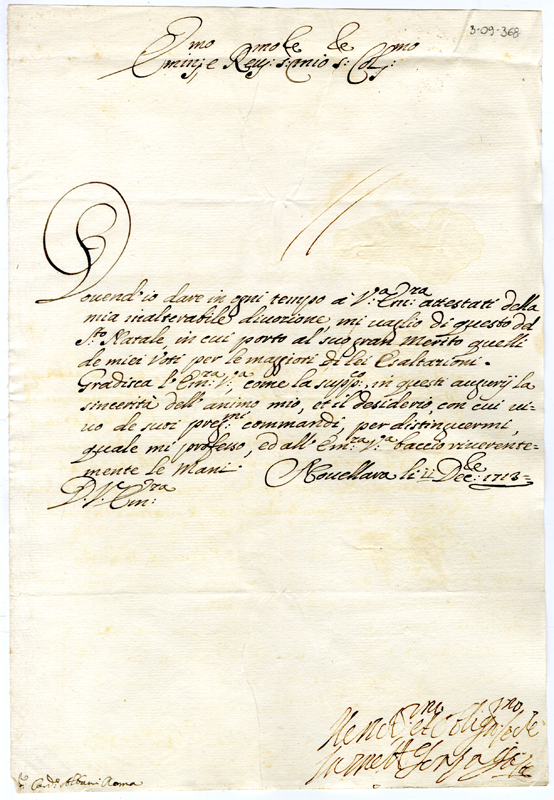 3-09-368
Emin.mo e Rev.mo S.r mio S.r Col.mo
Dovend'io dare in ogni tempo à V.a Em.ra attestati della
mia inalterabile divozione, mi vaglio di questo del
S.to Natale, in cui porto al suo gran Merito quelli
de miei Voti per le maggiori di lei Esaltazioni.
Gradisca l'Em.ra V.a, come la supp.co, in questi augurij la
sincerità dell'animo mio, et il desiderio, con cui vi-
vo de suoi pre.mi commandi, per distinguermi,
quale mi professo, ed all'Em.ra V.a baccio riverente-
mente le Mani. Novellara li 11 Dec.bre 1713
D. V. Em.ra
S.r Card.l Albani Roma